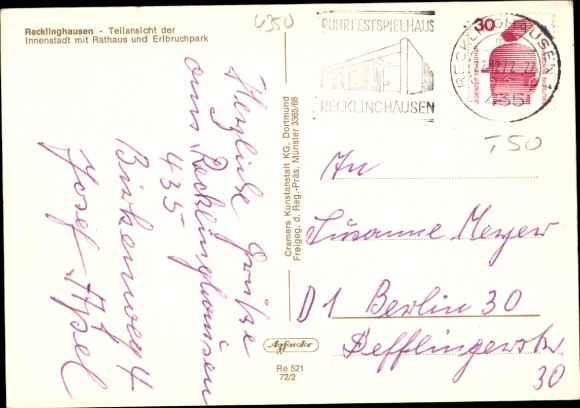 Recklinghausen - Teilansicht der
Innenstadt mit Rathaus und Erlbruchpark
4350
Herzliche Grüße
aus Recklinghausen
435
Birkenweg 4
Josef Apel
Cramers Kunstanstalt KG, Dortmund
Freigeg. d. Reg.-Präs. Münster 3365/68
RUHRFESTSPIELHAUS
RECKLINGHAUSEN
RECKLINGHAUSEN 1
435
30
T50
An
Susanne Meyer
D1 Berlin 30
Defflingerstr.
30
Agfacolor
Re 521
72/2